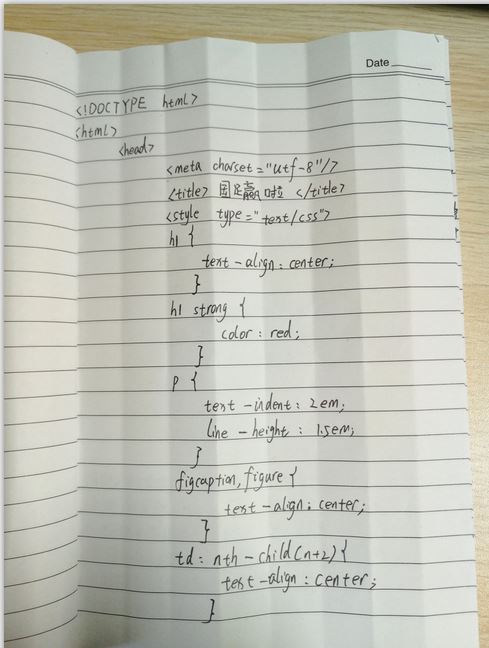 Date
<!DOCTYPE html>
<html>
<head>
<meta charset="utf-8"/>
<title> 国足赢啦 </title>
<style type="text/css">
h1 {
text-align: center;
}
h1 strong {
color: red;
}
p {
text-indent: 2em;
line-height: 1.5em;
}
figcaption, figure {
text-align: center;
}
td: nth-child(n+2) {
text-align: center;
}